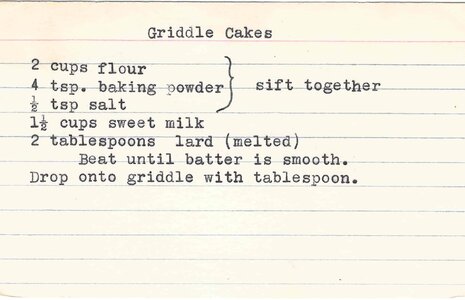 Griddle Cakes
2 cups flour
4 tsp. baking powder } sift together
½ tsp salt
1½ cups sweet milk
2 tablespoons lard (melted)
Beat until batter is smooth.
Drop onto griddle with tablespoon.